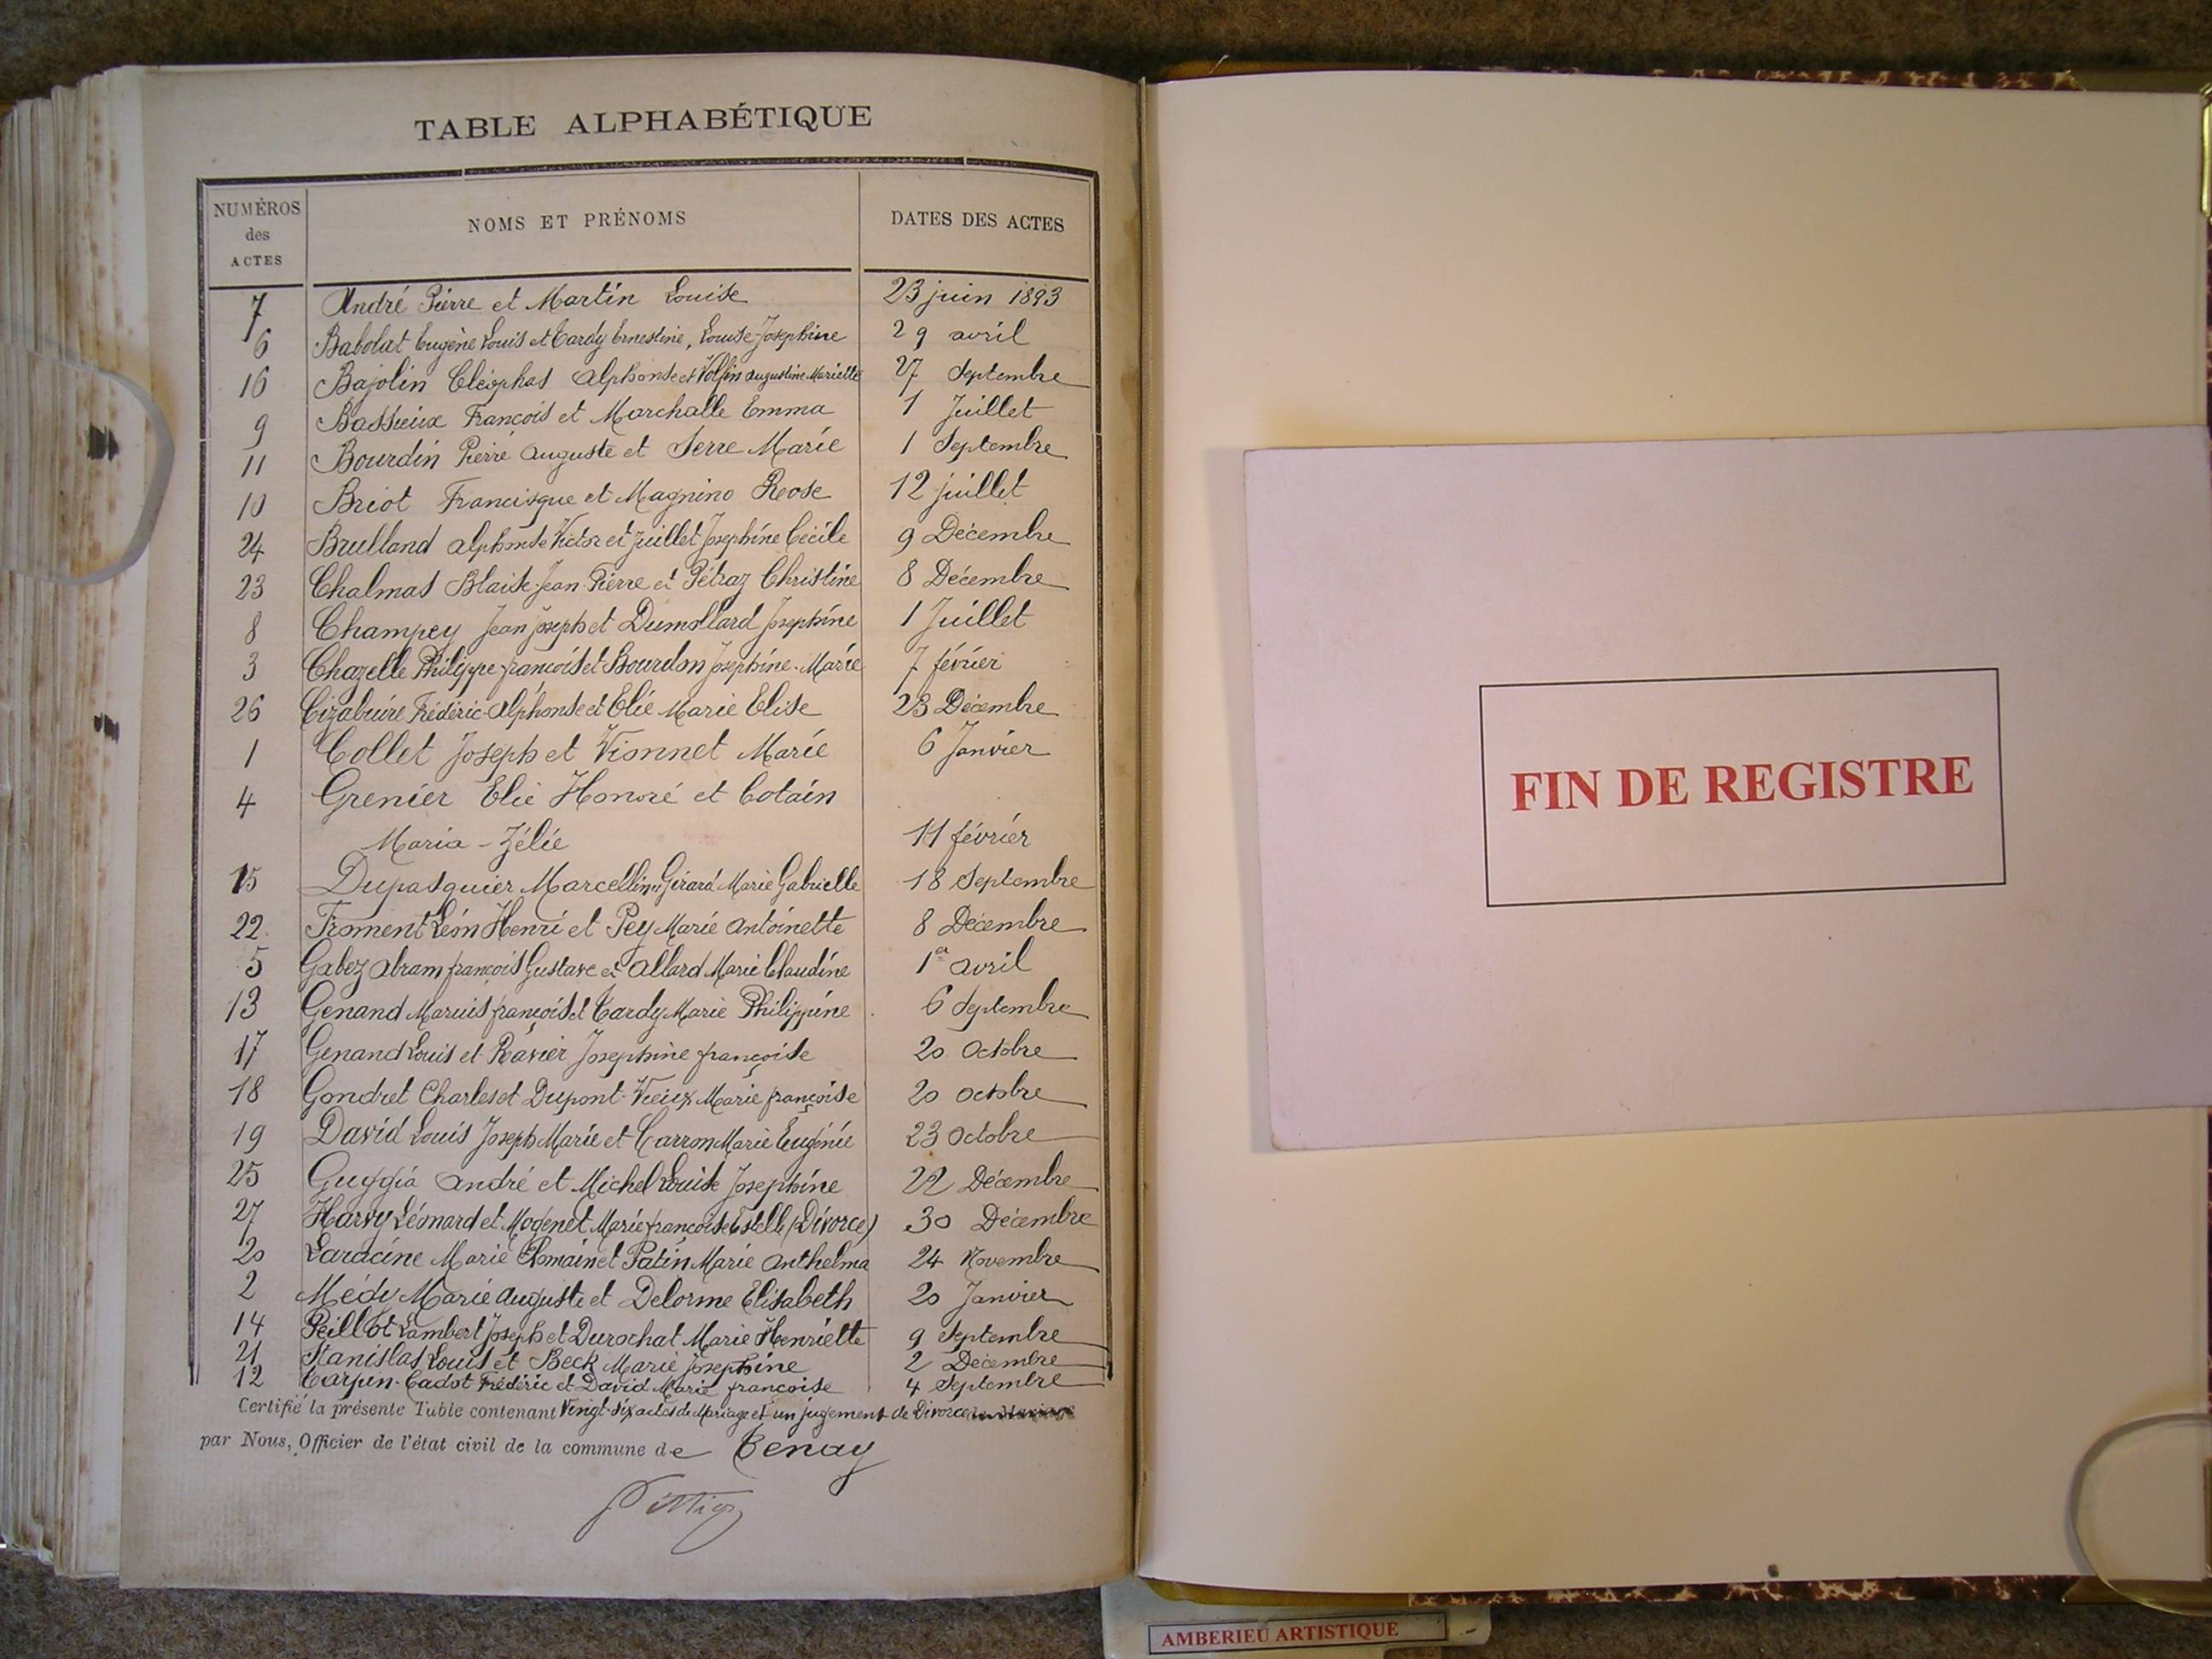 TABLE ALPHABÉTIQUE
NUMÉROS des ACTES NOMS ET PRÉNOMS DATES DES ACTES
7 André Pierre et Martin Louise 23 juin 1893
6 Babolat Eugène Louis et Tardy Ernestine, Louise-Josephine 29 avril
16 Bajolin Cléophas Alphonse et Volfin Augustine Mariette 27 Septembre
9 Bassieux François et Marchalle Emma 1 Juillet
11 Bourdin Pierre Auguste et Serre Marie 1 Septembre
10 Briot Francisque et Magnino Rose 12 juillet
24 Brulland Alphonse Victor et Juillet Josephine Cécile 9 Décembre
23 Chalmas Blaise-Jean-Pierre et Pétraz Christine 8 Décembre
8 Champey Jean Joseph et Dumollard Josephine 1 Juillet
3 Chazelle Philippe françois et Bourdon Josephine-Marie 7 février
26 Cizabuire Frédéric-Alphonse et Elie Marie Elise 23 Décembre
1 Collet Joseph et Vionnet Marie 6 Janvier
4 Grenier Elie Honoré et Cotain
Maria-Zélie 11 février
15 Dupasquier Marcellin et Girard Marie Gabrielle 18 Septembre
22 Froment Léon Henri et Pey Marie Antoinette 8 Décembre
5 Gabez Abram françois Gustave et Allard Marie Claudine 1er avril
13 Genand Marius françois et Tardy Marie Philippine 6 Septembre
17 Genand Louis et Ravier Josephine françoise 20 Octobre
18 Gondret Charles et Dupont-Vieux Marie françoise 20 octobre
19 David Louis Joseph Marie et Carron Marie Eugénie 23 Octobre
25 Guggia André et Michel Louise Josephine 22 Décembre
27 Harvy Léonard et Mogenet Marie françoise Estelle (Divorce) 30 Décembre
20 Laracine Marie Romain et Patin Marie Anthelma 24 Novembre
2 Médy Marie Auguste et Delorme Elisabeth 20 Janvier
14 Peillot Lambert Joseph et Durochat Marie Henriette 9 Septembre
21 Stanislas Louis et Beck Marie Josephine 2 Décembre
12 Tarpin-Cadot Frédéric et David Marie françoise 4 Septembre
Certifié la présente Table contenant Vingt-six actes de Mariage et un jugement de Divorce
par Nous, Officier de l'état civil de la commune de Tenay
FIN DE REGISTRE
AMBERIEU ARTISTIQUE